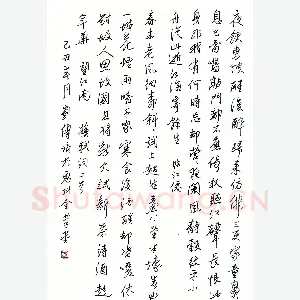 夜饮东坡醒复醉归来仿佛三更家童鼻
息已雷鸣敲门都不应倚杖听江声长恨此
身非我有何时忘却营营夜阑风静縠纹平小
舟从此逝江海寄馀生 临江仙
春未老风细柳斜斜试上超然台上半壕春水
一城花烟雨暗千家寒食后酒醒却咨嗟休
对故人思故国且将新火试新茶诗酒趁
年华 望江南 苏轼词二首
己丑年月
Shufawang.CN